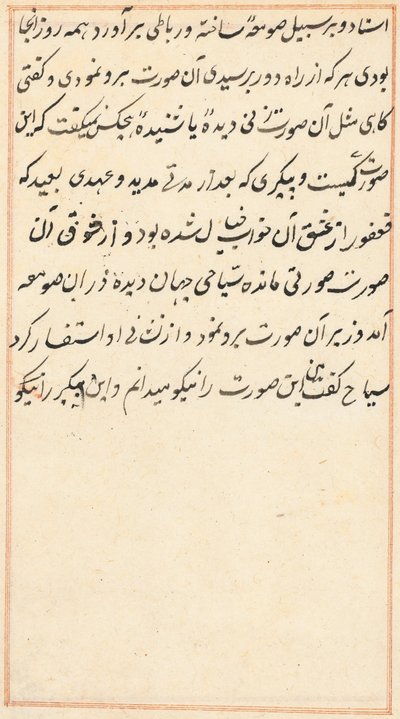 استاد و بر سبیل صومعهٔ ساخته و رباطی بر آورد همه روز آنجا
بودی هر که از راه دور برسیدی آن صورت برو نمودی و کفتی
کاهی مثل آن صورت زنی دیدهٔ یا شنیدهٔ هیچکس نمیکفت که این
صورت کیست و پیکری که بعد از مدتے مدید و عهدی بعید که
فغفور از عشق آن خواب خیال شده بود و از شوق آن
صورت صورتی مانده سیاحی جهان دیده در ان صومعه
آمد وزیر آن صورت برو نمود و از نشانی او استفسار کرد
سیاح کفت من این صورت را نیکو میدانم و این پیکر را نیکو